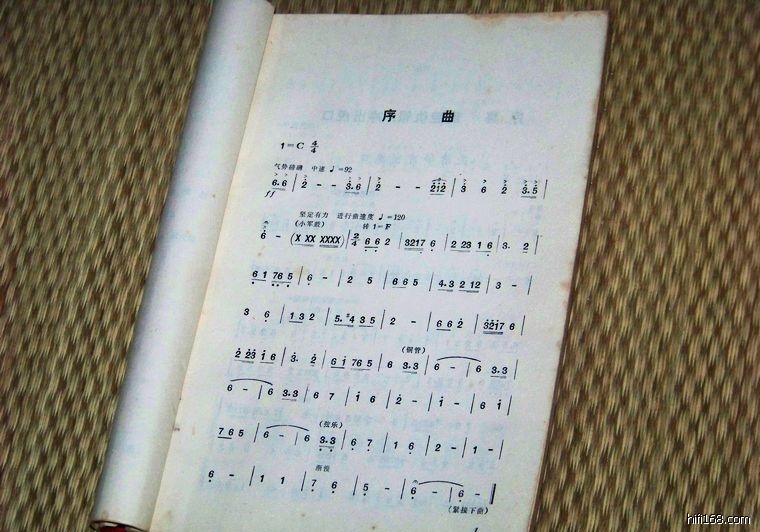 序 曲
1=C 4/4
气势磅礴 中速 ♩=92
6.6 | 2 - - 3.6 | 2 - - 212 | 3 6 2 3.5 |
ff
坚定有力 进行曲速度 ♩=120
(小军鼓) 转 1=F
6 - (X XX XXXX) | 2/4 6 6 2 | 3217 6 | 2 23 1 6 | 3. 2 |
6 1 76 5 | 6 - | 2 5 | 6 6 5 | 4.3 2 12 | 3 - |
3. 6 | 1 3 2 | 5. #4 3 5 | 2 - | 6 6 2 | 3217 6 |
(铜管)
2 23 1 6 | 3. 2 | 6 1 76 5 | 6 3.3 | 6 - | 6 3.3 |
6 - | 6 3.3 | 6 7 | 1 6 | 2 - | 1 - | 6 1 |
(弦乐)
7 6 5 | 6 - | 6 3.3 | 6 7 | 1 6 | 2 - | 1 - |
渐慢
6 - | 1 1 | 7 6 | 5 - | 6 - | 6 - ‖
(紧接下曲)
hifi168.com